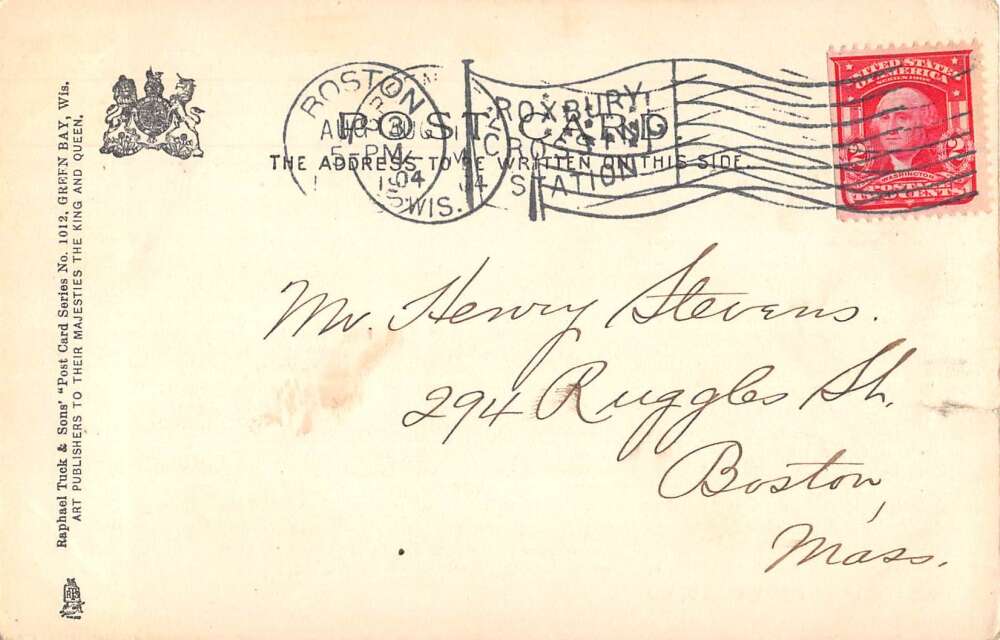 Raphael Tuck & Sons' "Post Card Series No. 1012, GREEN BAY, Wis.
ART PUBLISHERS TO THEIR MAJESTIES THE KING AND QUEEN.
BOSTON
AUG 31
5 - PM
04
WIS.
ROXBURY
CRO
STATION
POST CARD.
THE ADDRESS TO BE WRITTEN ON THIS SIDE.
UNITED STATES
OF AMERICA
WASHINGTON
TWO CENTS
Mr. Henry Stevens.
294 Ruggles St.
Boston,
Mass.